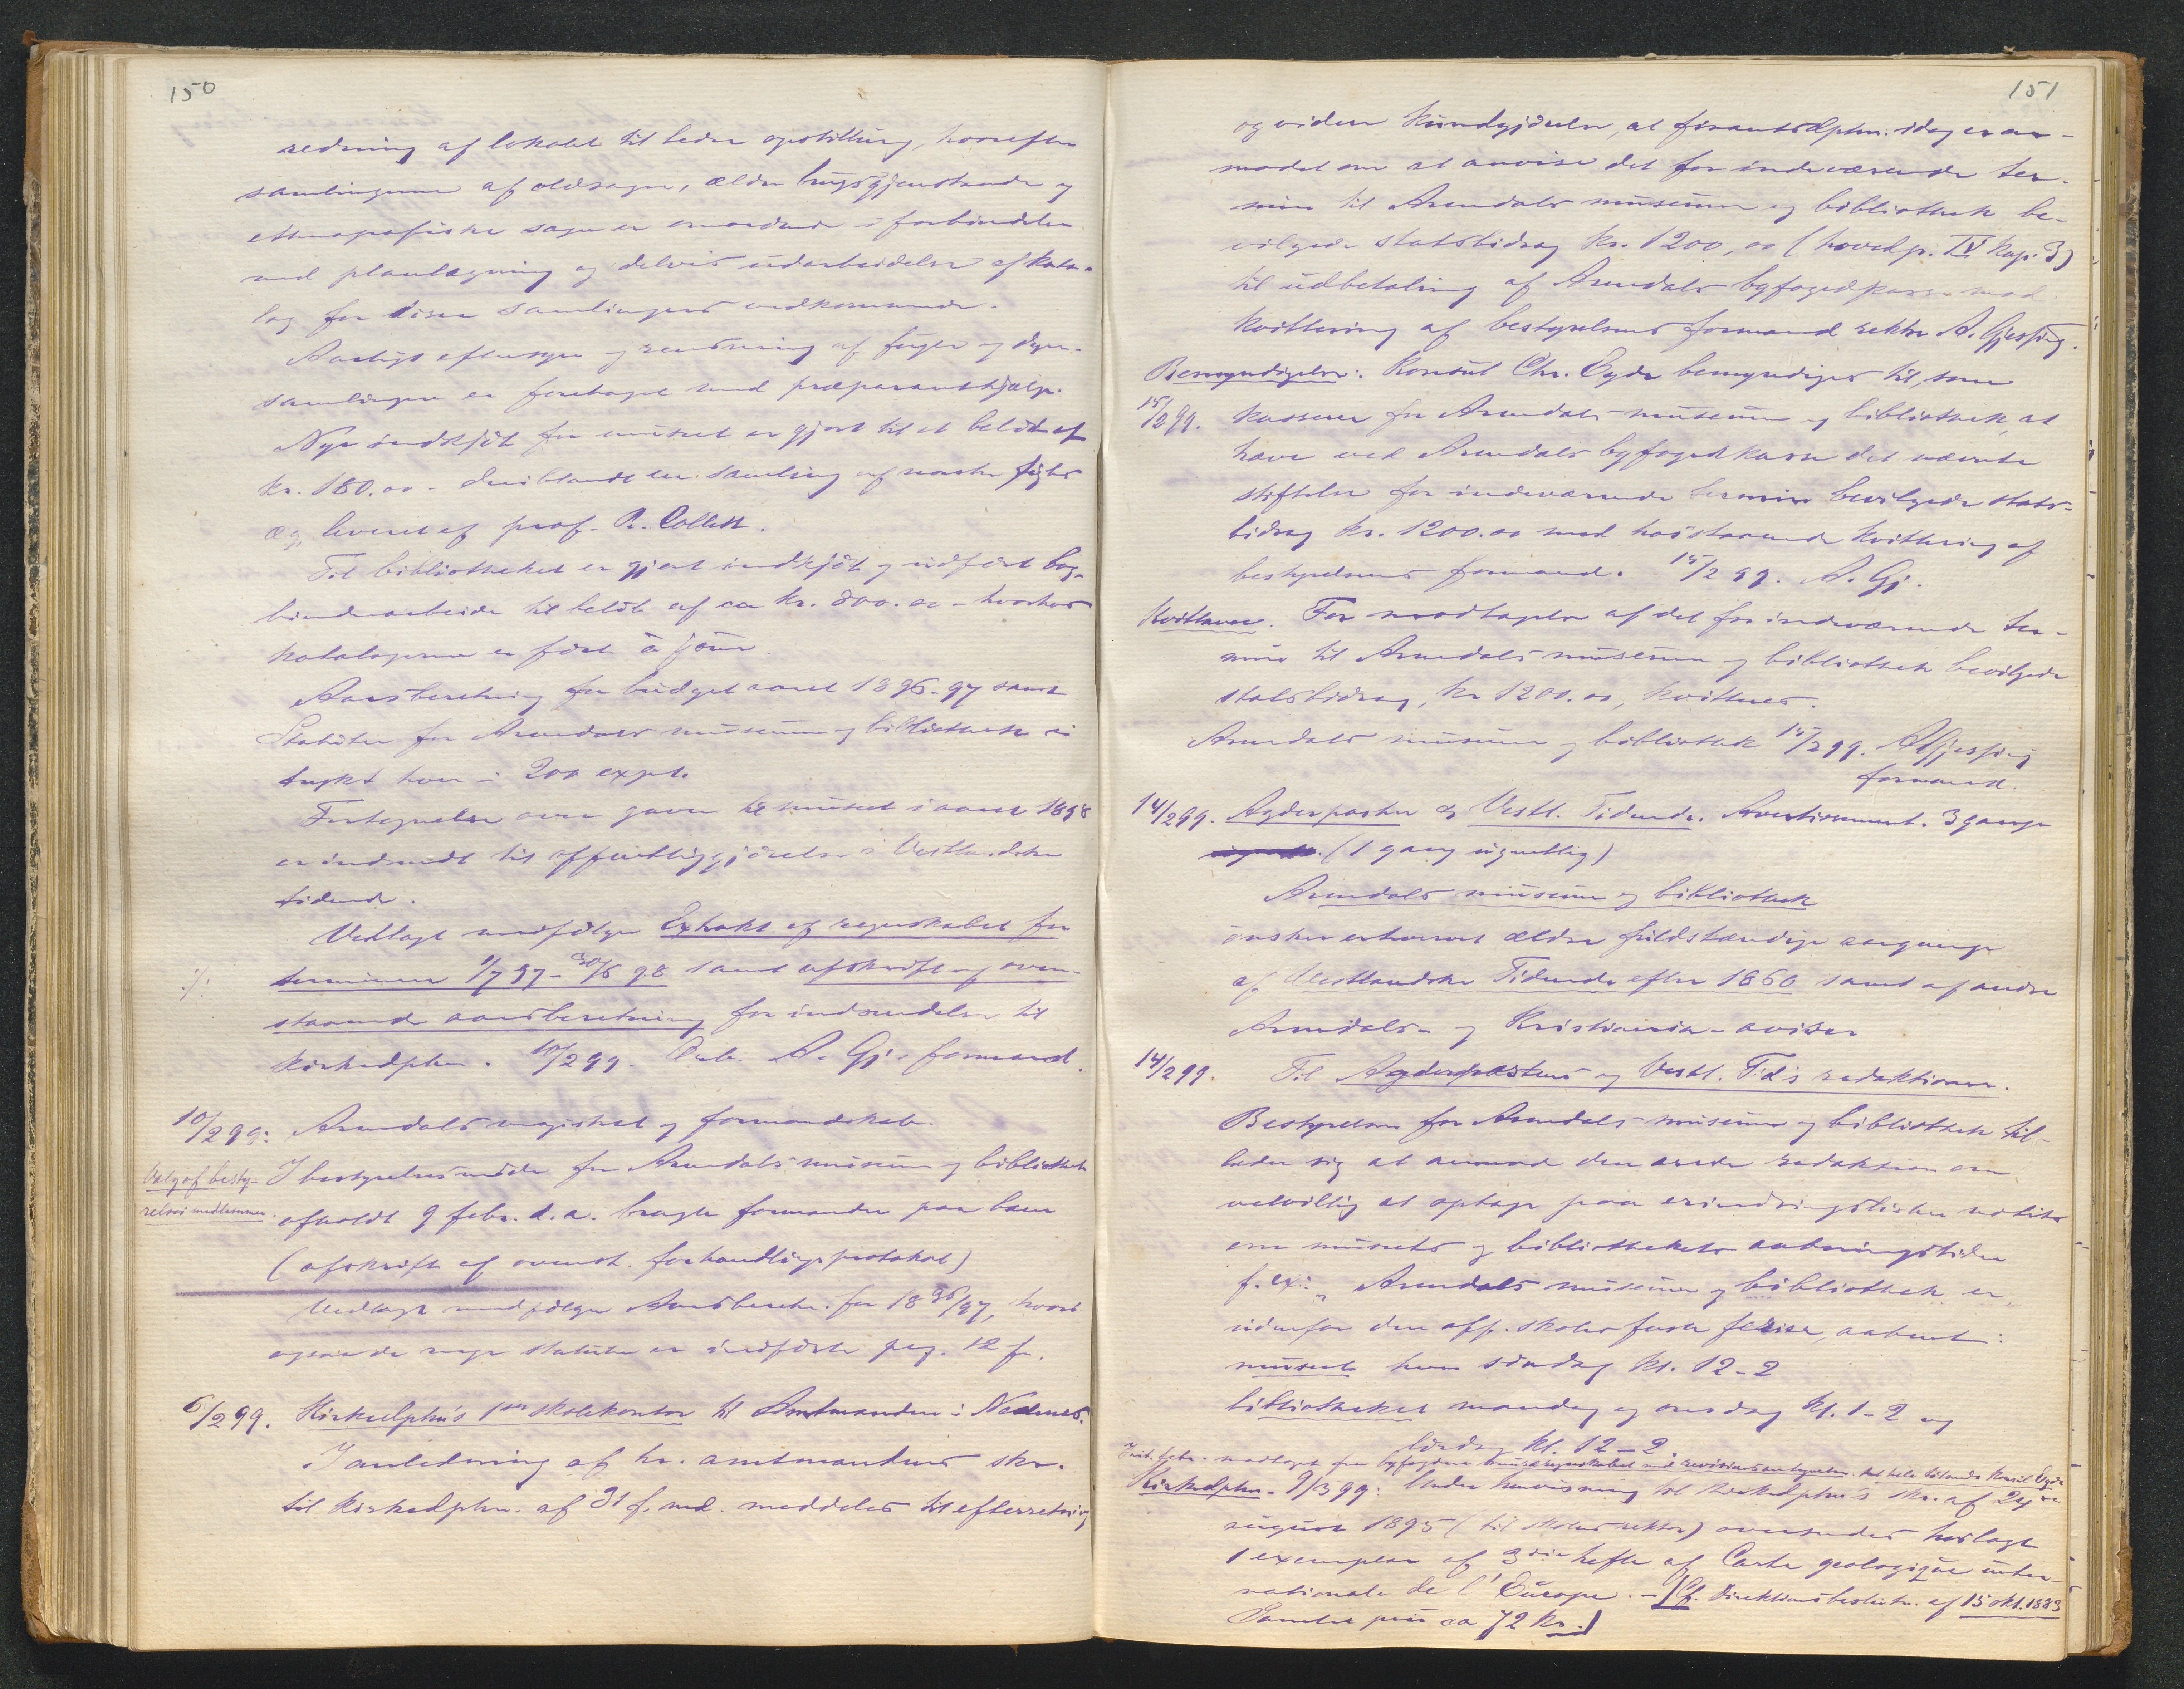 150
redning af lokalet til bedre opstilling, hvorefter
samlingerne af oldsager, ældre brugsgjenstande og
etnografiske sager er omordnede i forbindelse
med planlægning og delvis udarbeidelse af kata-
log for disse samlingers vedkommende.
Aarligt eftersyn og rensning af fugle og dyre-
samlingen er foretaget med præparanthjælp.
Nye indkjöb for museet er gjort til et belöb af
kr. 180.00 - deriblandt en samling af norske fugles
æg, leveret af prof. R. Collett.
Til bibliotheket er gjort indkjöb og udfört bog-
binderarbeide til belöb af ca kr. 800.00 - hvorhos
katalogerne er fört à jour.
Aarsberetning for budgetaaret 1896-97 samt
Statuter for Arendals museum og bibliothek er
trykt hver i 200 expl.
Fortegnelse over gaver til museet i aaret 1898
er indsendt til offentliggjörelse i Vestlandske
tidende.
Vedlagt medfölger Extrakt af regnskabet for
./. terminen 1/7 97 - 30/6 98 samt afskrift af oven-
staaende aarsberetning for indsendelse til
kirkedptm. 10/2 99. Ærb. A. Gj. formand.
10/2 99: Arendals magistrat og formandskab.
Valg af besty-
relsesmedlemmer.
I bestyrelsesmöde for Arendals museum og bibliothek
afholdt 9 febr. d.a. bragte formanden paa bane
(afskrift af ovenst. forhandlingsprotokol)
Vedlagt medfölger Aarsberetn. for 1896/97, hvori
ogsaa de nye statuter er indförte pag. 12 f.
6/2 99. Kirkedptm's 1ste skolekontor til Amtmanden i Nedenes.
I anledning af hr. amtmandens skr.
til kirkedptm. af 31 f. md. meddeles til efterretning
151
og videre kundgjörelse, at finantsdptm. idag er an-
modet om at anvise det for indeværende ter-
min til Arendals museum og bibliothek be-
vilgede statsbidrag kr. 1200,00 (hovedp. IV kap. 3)
til udbetaling af Arendals byfogedkasse mod
kvittering af bestyrelsens formand rektor A. Gjessing.
Bemyndigelse: Konsul Chr. Eyde bemyndiges til, som
15/2 99. kasserer for Arendals museum og bibliothek, at
hæve ved Arendals byfogedkasse det nævnte
stiftelse for indeværende termin bevilgede stats-
bidrag kr. 1200.00 med hosstaaende kvittering af
bestyrelsens formand. 15/2 99. A. Gj.
Kvittance. For modtagelse af det for indeværende ter-
min til Arendals museum og bibliothek bevilgede
statsbidrag, kr 1200.00, kvitteres.
Arendals museum og bibliothek 15/2 99. AGjessing
formand.
14/2 99. Agderposten og Vestl. Tidende. Avertissement. 3 gange
(1 gang ugentlig)
Arendals museum og bibliothek
önsker erhvervet ældre fuldstændige aargange
af Vestlandske Tidende efter 1860 samt af andre
Arendals- og Kristiania-aviser
14/2 99. Til Agderpostens og Vestl. Tid's redaktioner.
Bestyrelsen for Arendals museum og bibliothek til-
lader sig at anmode den ærede redaktion om
velvillig at optage paa erindringslisten notits
om museets og bibliothekets aabningstider
f. ex: "Arendals museum og bibliothek er
udenfor den off. skoles faste ferier, aabent:
museet hver söndag kl. 12-2
bibliotheket mandag og onsdag kl. 1-2 og
lördag kl. 12-2.
febr. modtaget fra byfogden museregnskabet med revisionsantegnelser. Konsul Eyde
Kirkedptm. 9/3 99: Under henvisning til kirkedptm's skr. af 24de
august 1895 (til skolens rektor) oversendes herlagt
1 exemplar af 3die hefte af Carte geologique inter-
nationale de l'Europe. - [Cf. Direktionsbeslutn. af 15 okt. 1883
Samlet pris ca 72 kr.]